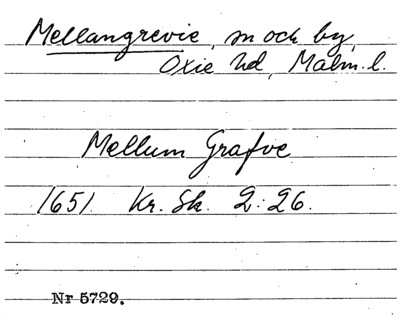 Mellangrevie, sn och by,
Oxie hd, Malm. l.
Mellum Grafve
1651. Kr. Sk. 2:26.
Nr 5729.